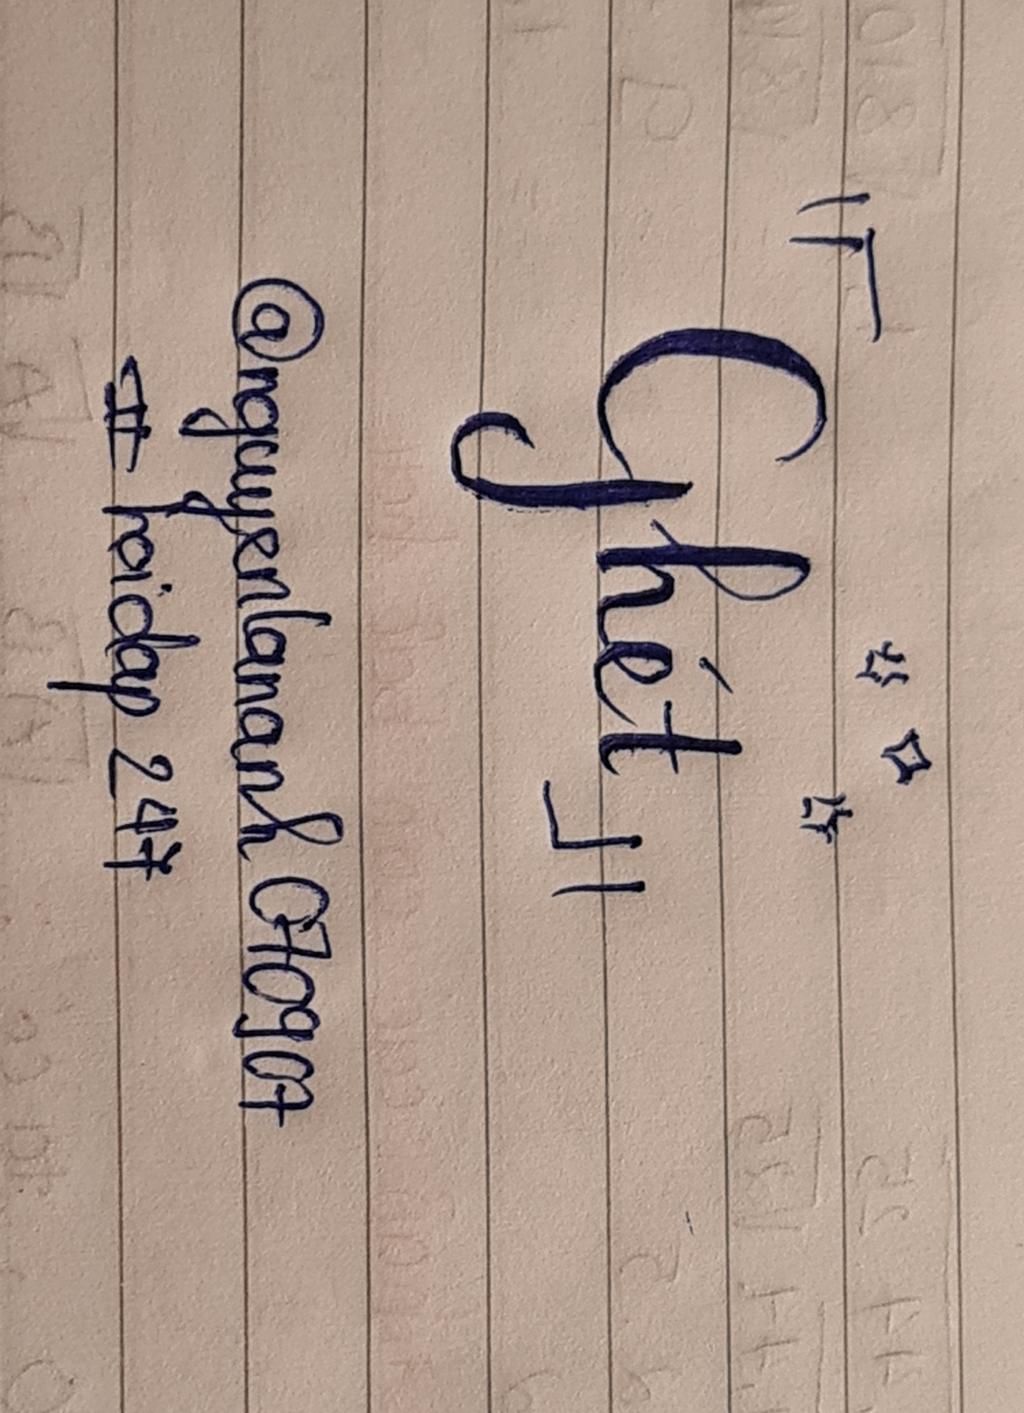 "Ghét"
@nguyenlananh070907
# hoidap 247